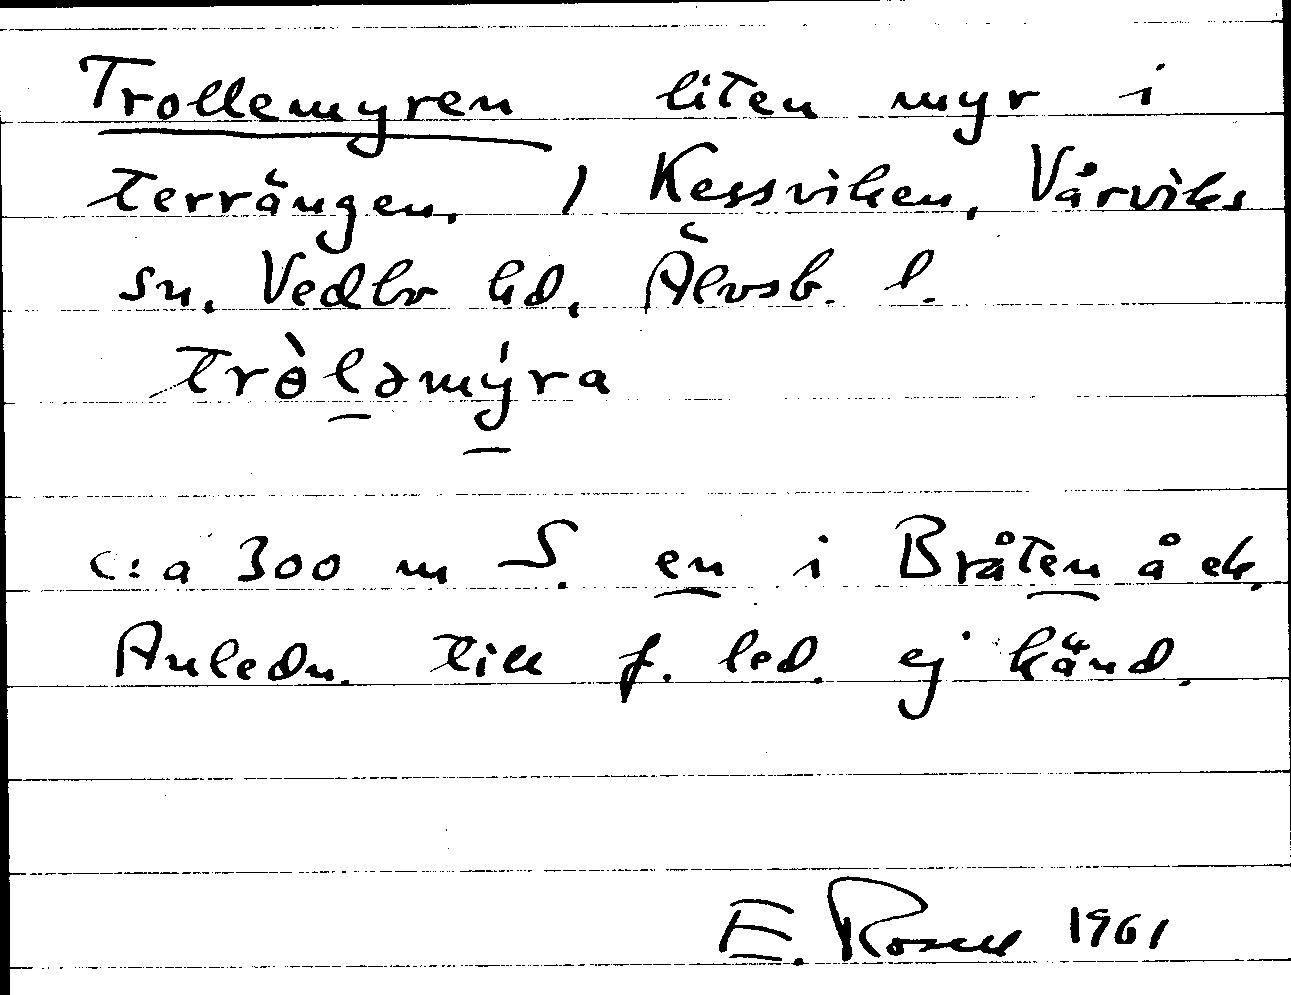 Trollemyren liten myr i
terrängen, / Kessviken, Vårviks
sn. Vedbo hd, Älvsb. l.
trɵ̀ləmýra
c:a 300 m S. en i Bråten å ek.
Anledn. till f. led. ej känd.
E. Rosell 1961